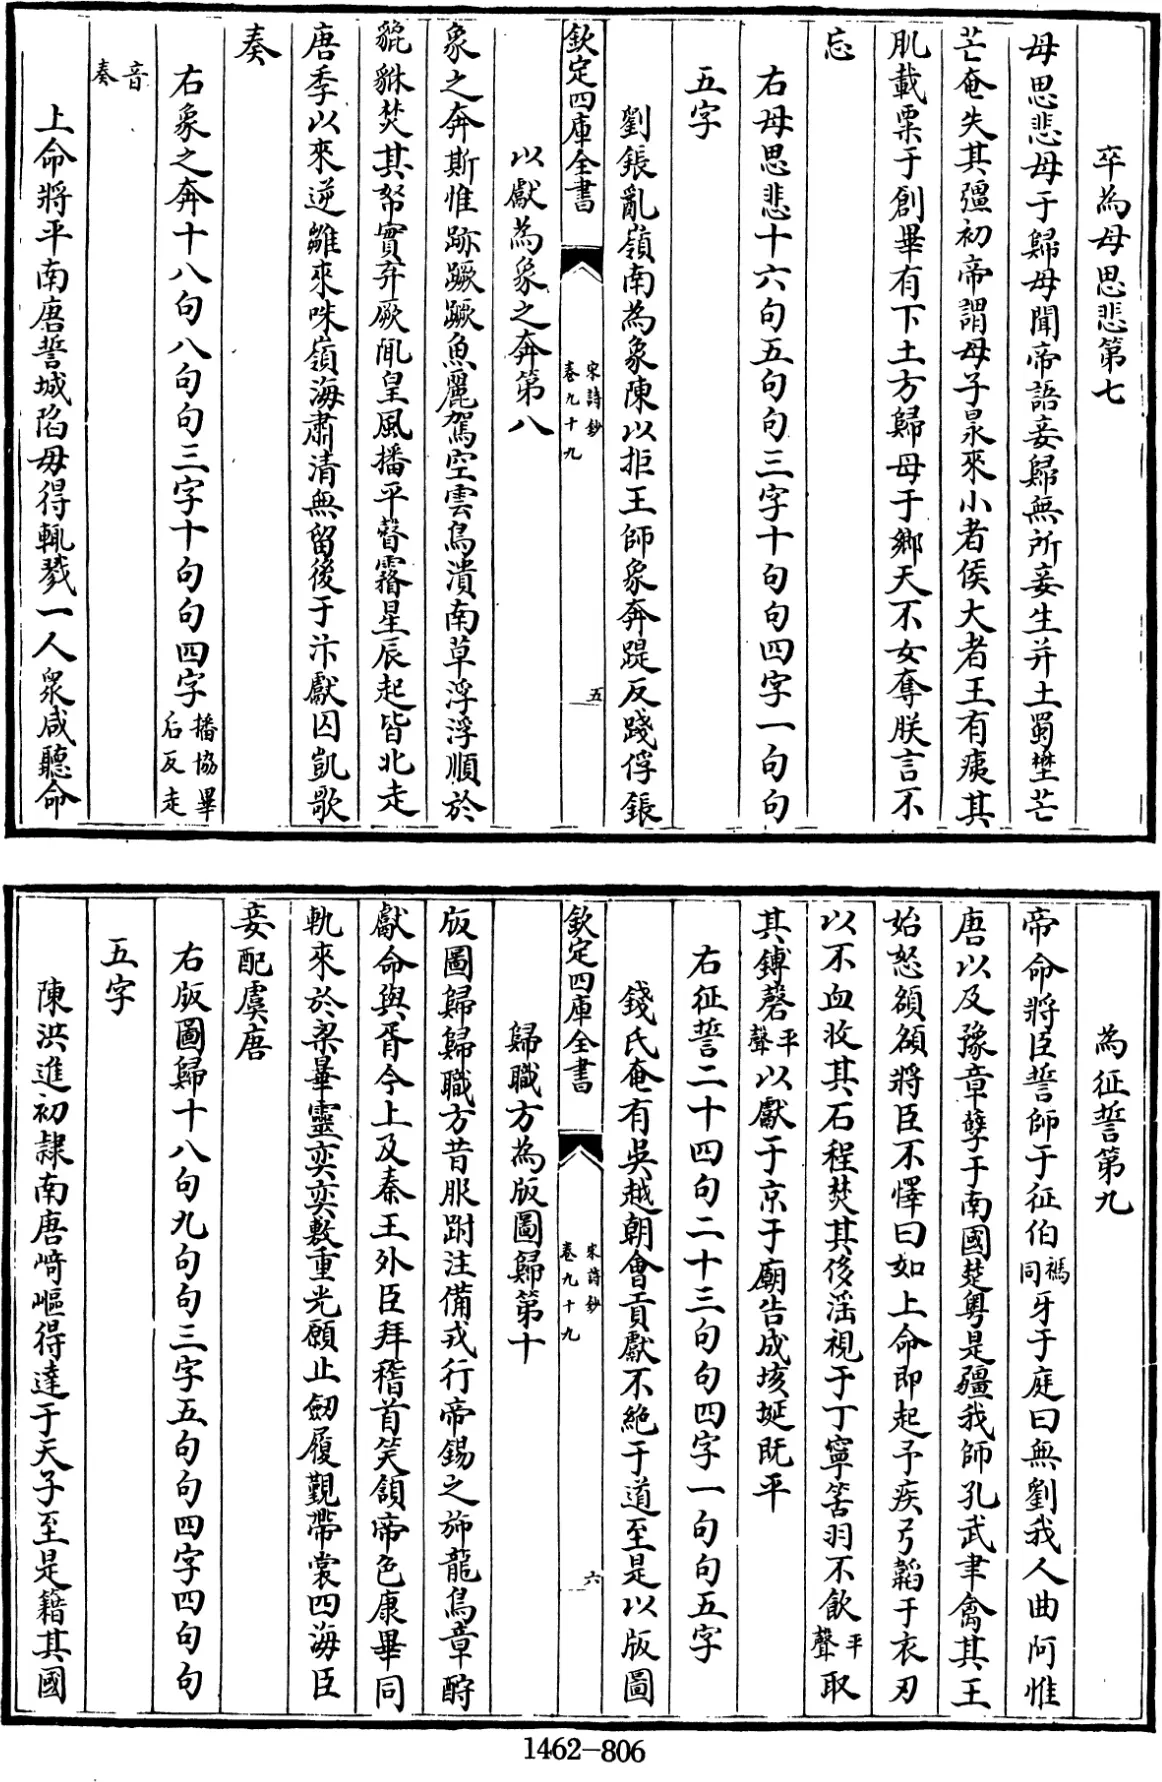 卒為母思悲第七
母思悲母于歸母聞帝語妾歸無所妾生并土蜀壄芒
芒奄失其疆初帝謂母子泉來小者侯大者王有痍其
肌載粟于創畢有下土方歸母于鄉天不女奪朕言不
忘
右母思悲十六句五句句三字十句句四字一句句
五字
劉鋹亂嶺南為象陳以拒王師象奔踶反踐俘鋹
欽定四庫全書
宋詩鈔
卷九十九
五
以獻為象之奔第八
象之奔斯惟跡蹶蹶魚麗駕空雲鳥潰南草浮浮順於
貔貅焚其帑實弃厥甿皇風播平瞀霿星辰起皆北走
唐季以來逆雛來咮嶺海肅清無留後于汴獻囚凱歌
奏
右象之奔十八句八句句三字十句句四字播協畢
后反走
音
奏
上命將平南唐誓城陷毋得輒戮一人衆咸聽命
為征誓第九
帝命將臣誓師于征伯禡
同牙于庭曰無劉我人曲阿惟
唐以及豫章孽于南國楚粵是疆我師孔武聿禽其王
始怒頟頟將臣不懌曰如上命即起予疾弓韜于衣刃
以不血收其石程焚其侈滛視于丁寧筈羽不飲平
聲取
其鏄磬平
聲以獻于京于廟告成垓埏既平
右征誓二十四句二十三句句四字一句句五字
錢氏奄有吳越朝會貢獻不絶于道至是以版圖
欽定四庫全書
宋詩鈔
卷九十九
六
歸職方為版圖歸第十
版圖歸歸職方昔服跗注備戎行帝錫之斾龍鳥章酧
獻命與胥今上及秦王外臣拜稽首笑頷帝色康畢同
軌來於梁畢靈奕奕敷重光願止劒履覲帶裳四海臣
妾配虞唐
右版圖歸十八句九句句三字五句句四字四句句
五字
陳洪進初隷南唐崎嶇得達于天子至是籍其國
1462-806